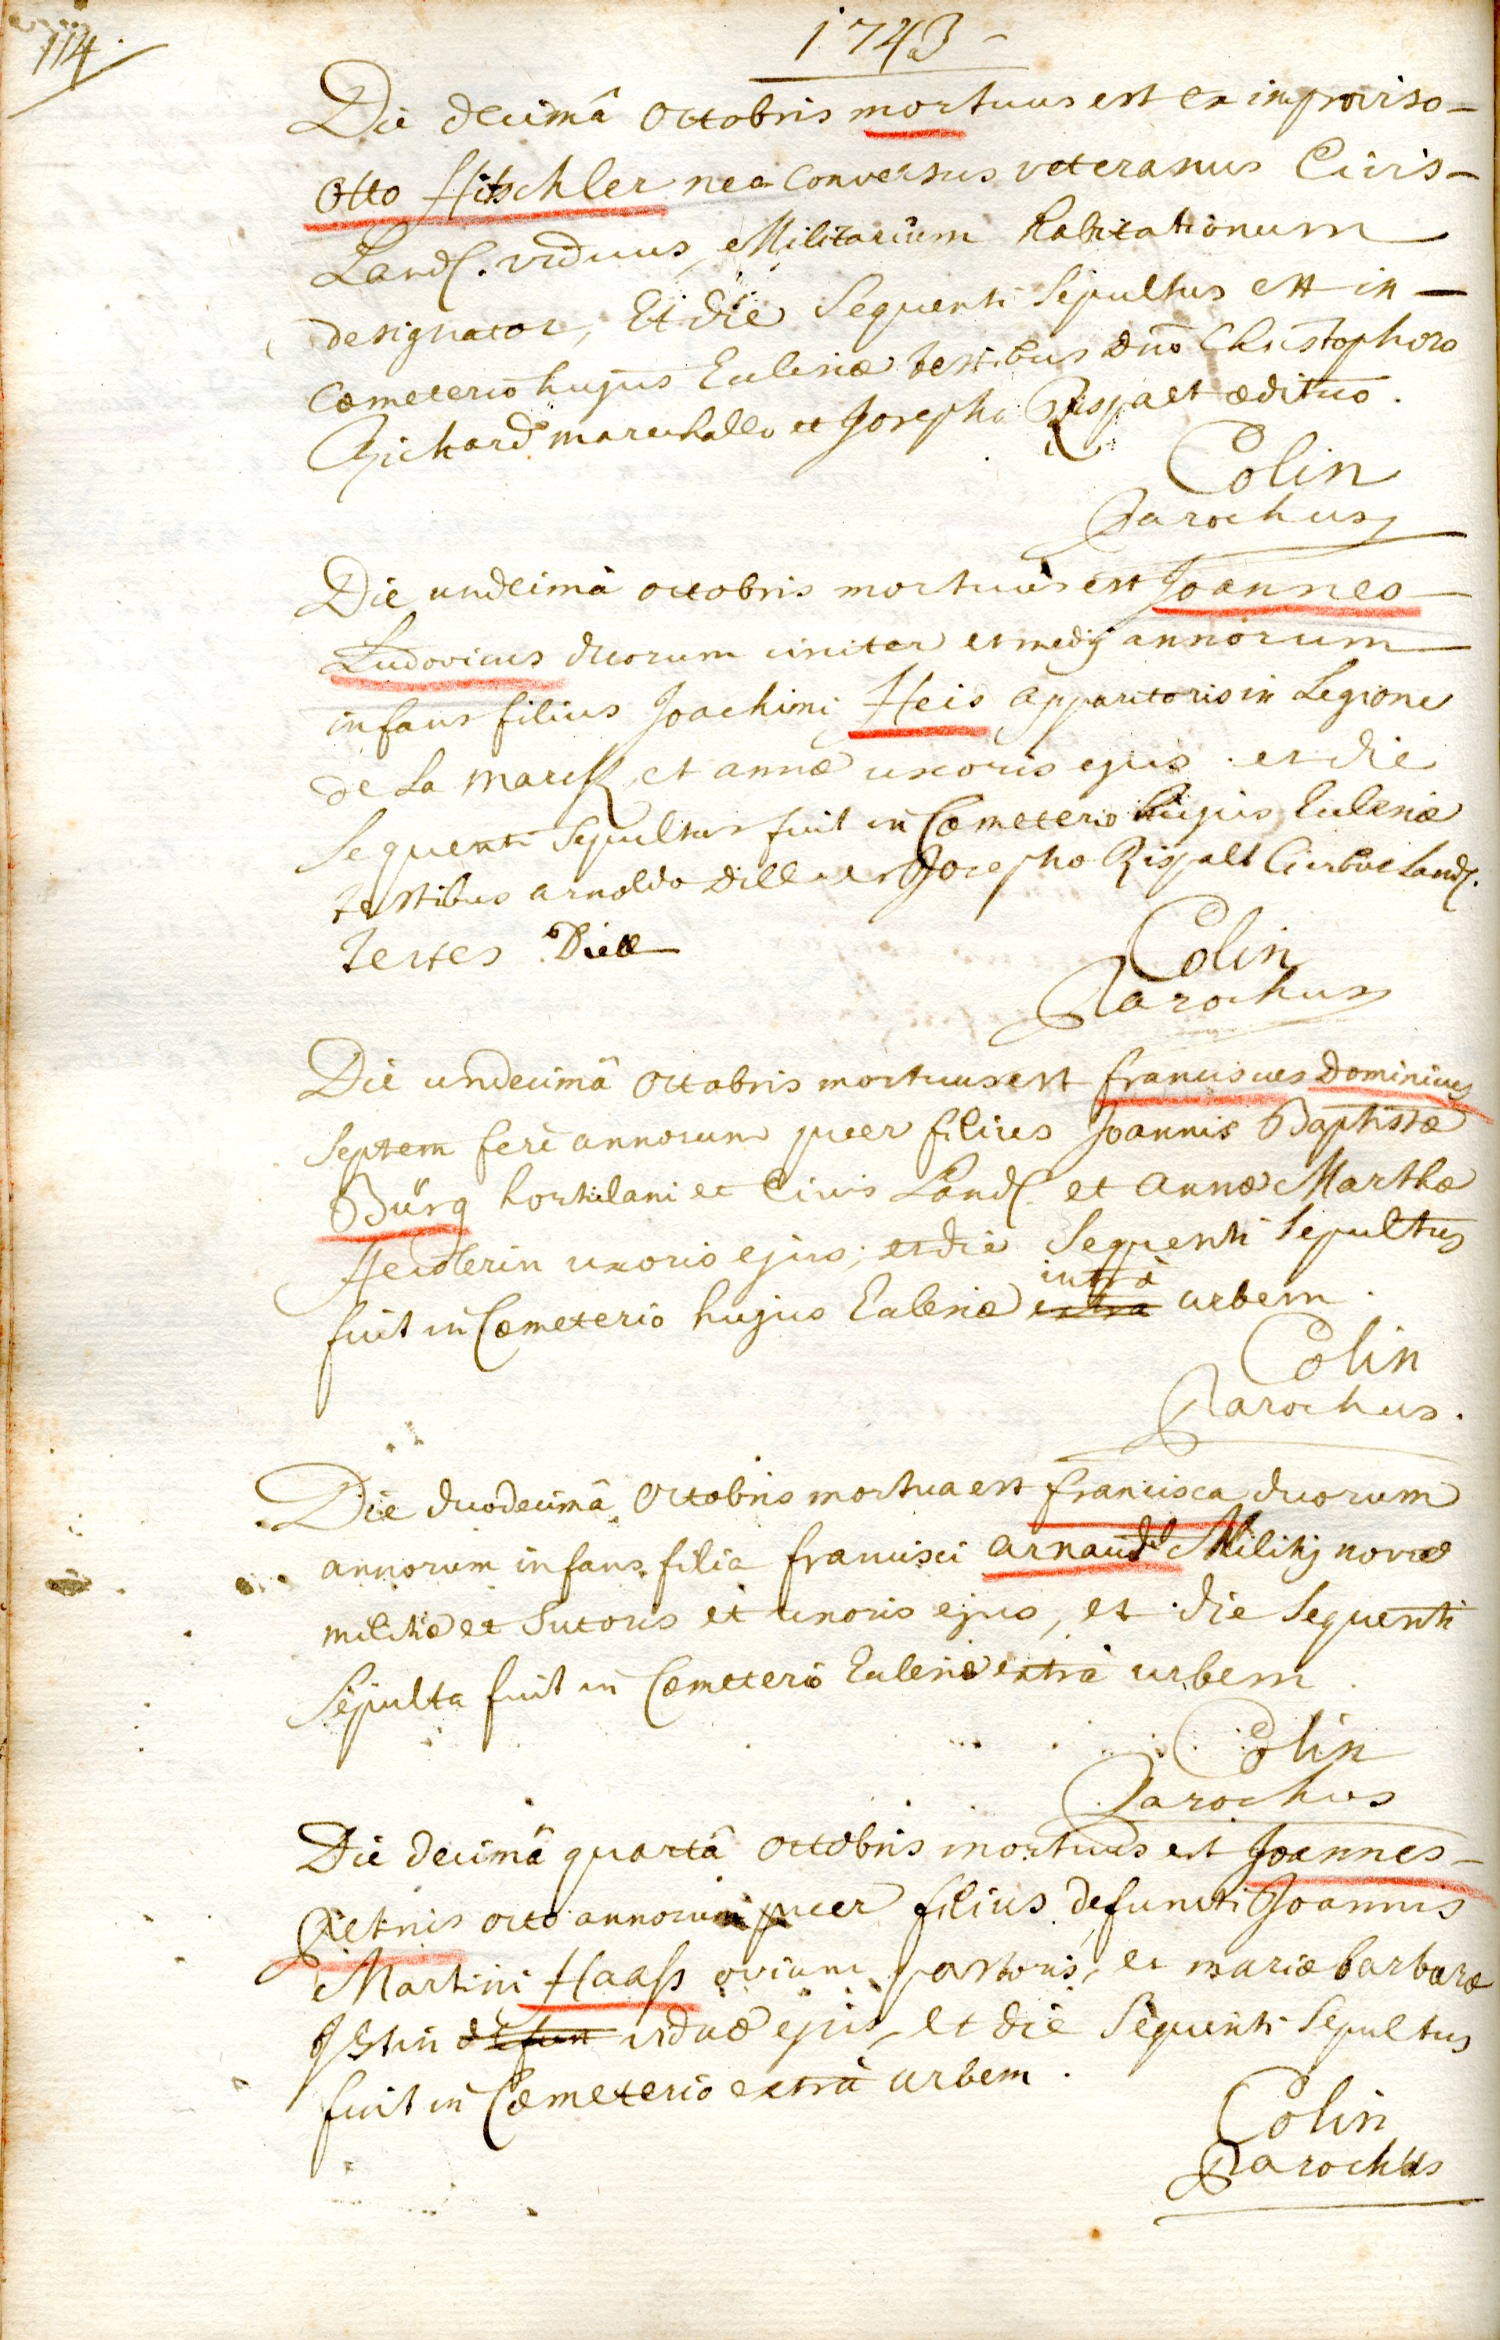 114.
1743
Die decimâ octobris mortuus est ex improviso
Otto Hitschler neo conversus veteranus Civis
Land. viduus, Militarium habitationum
designator, Et die sequenti sepultus est in
Cœmeterio hujus Ecclesiæ testibus dno Christophoro
Richard marechallo et Josepho Rispalt ædituo.
Colin
Parochus
Die undecimâ octobris mortuus est Joannes
Ludovicus duorum circiter et medij annorum
infans filius Joachimi Heis apparitoris in Legione
de la Marck et annæ uxoris ejus. et die
sequenti sepultus fuit in Cœmeterio hujus Ecclesiæ
testibus arnoldo Dill et Josepho Rispalt Civibus Land.
testes Diell
Colin
Parochus
Die undecimâ octobris mortuus est franciscus Dominicus
septem ferè annorum puer filius Joannis Baptistæ
Bürg hortulani et Civis Land. et annæ Marthæ
Heidlerin uxoris ejus; et die sequenti sepultus
intrà
fuit in Cœmeterio hujus Ecclesiæ extra urbem.
Colin
Parochus.
Die duodecimâ octobris mortua est francisca duorum
annorum infans filia francisci arnaud Militis novæ
militiæ et sutoris et uxoris ejus, et die sequenti
sepulta fuit in Cœmeterio Ecclesiæ extrà urbem.
Colin
Parochus
Die decimâ quartâ octobris mortuus est Joannes
Petrus octo annorum puer filius defuncti Joannis
Martini Haass ovium pastoris, et mariæ barbaræ
viduæ ejus, Et die sequenti sepultus
fuit in Cœmeterio extrà urbem.
Colin
Parochus